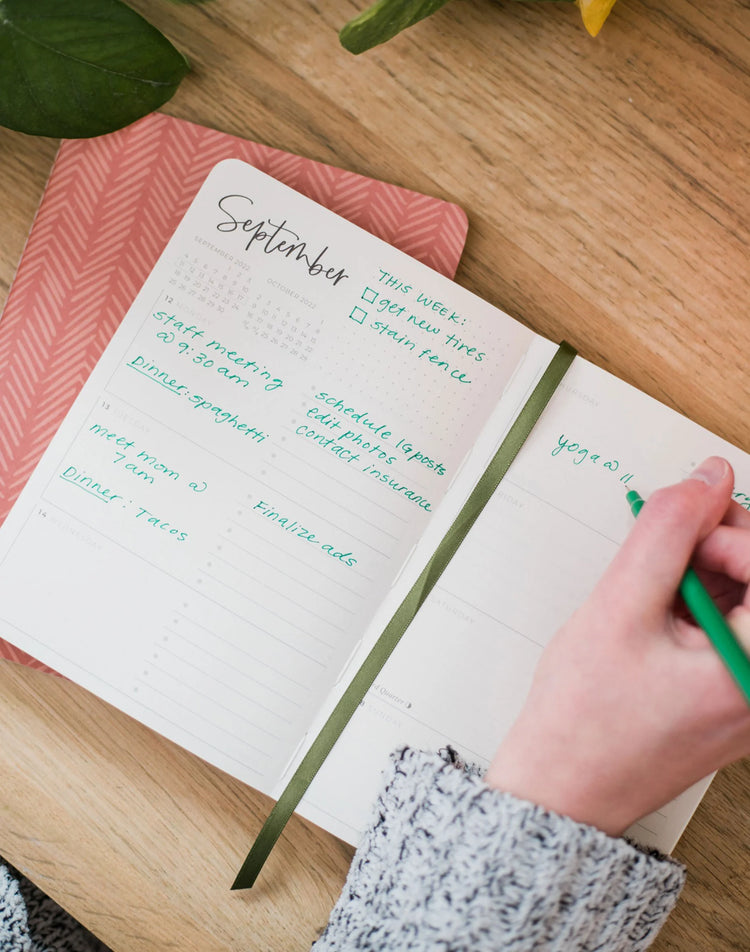 September
SEPTEMBER 2022
OCTOBER 2022
THIS WEEK:
get new tires
stain fence
12 MONDAY
staff meeting
@ 9:30 am
Dinner: spaghetti
schedule IG posts
edit photos
contact insurance
13 TUESDAY
meet mom @
7am
Dinner: Tacos
Finalize ads
14 WEDNESDAY
THURSDAY
yoga @ 11
SATURDAY
Quarter
SUNDAY